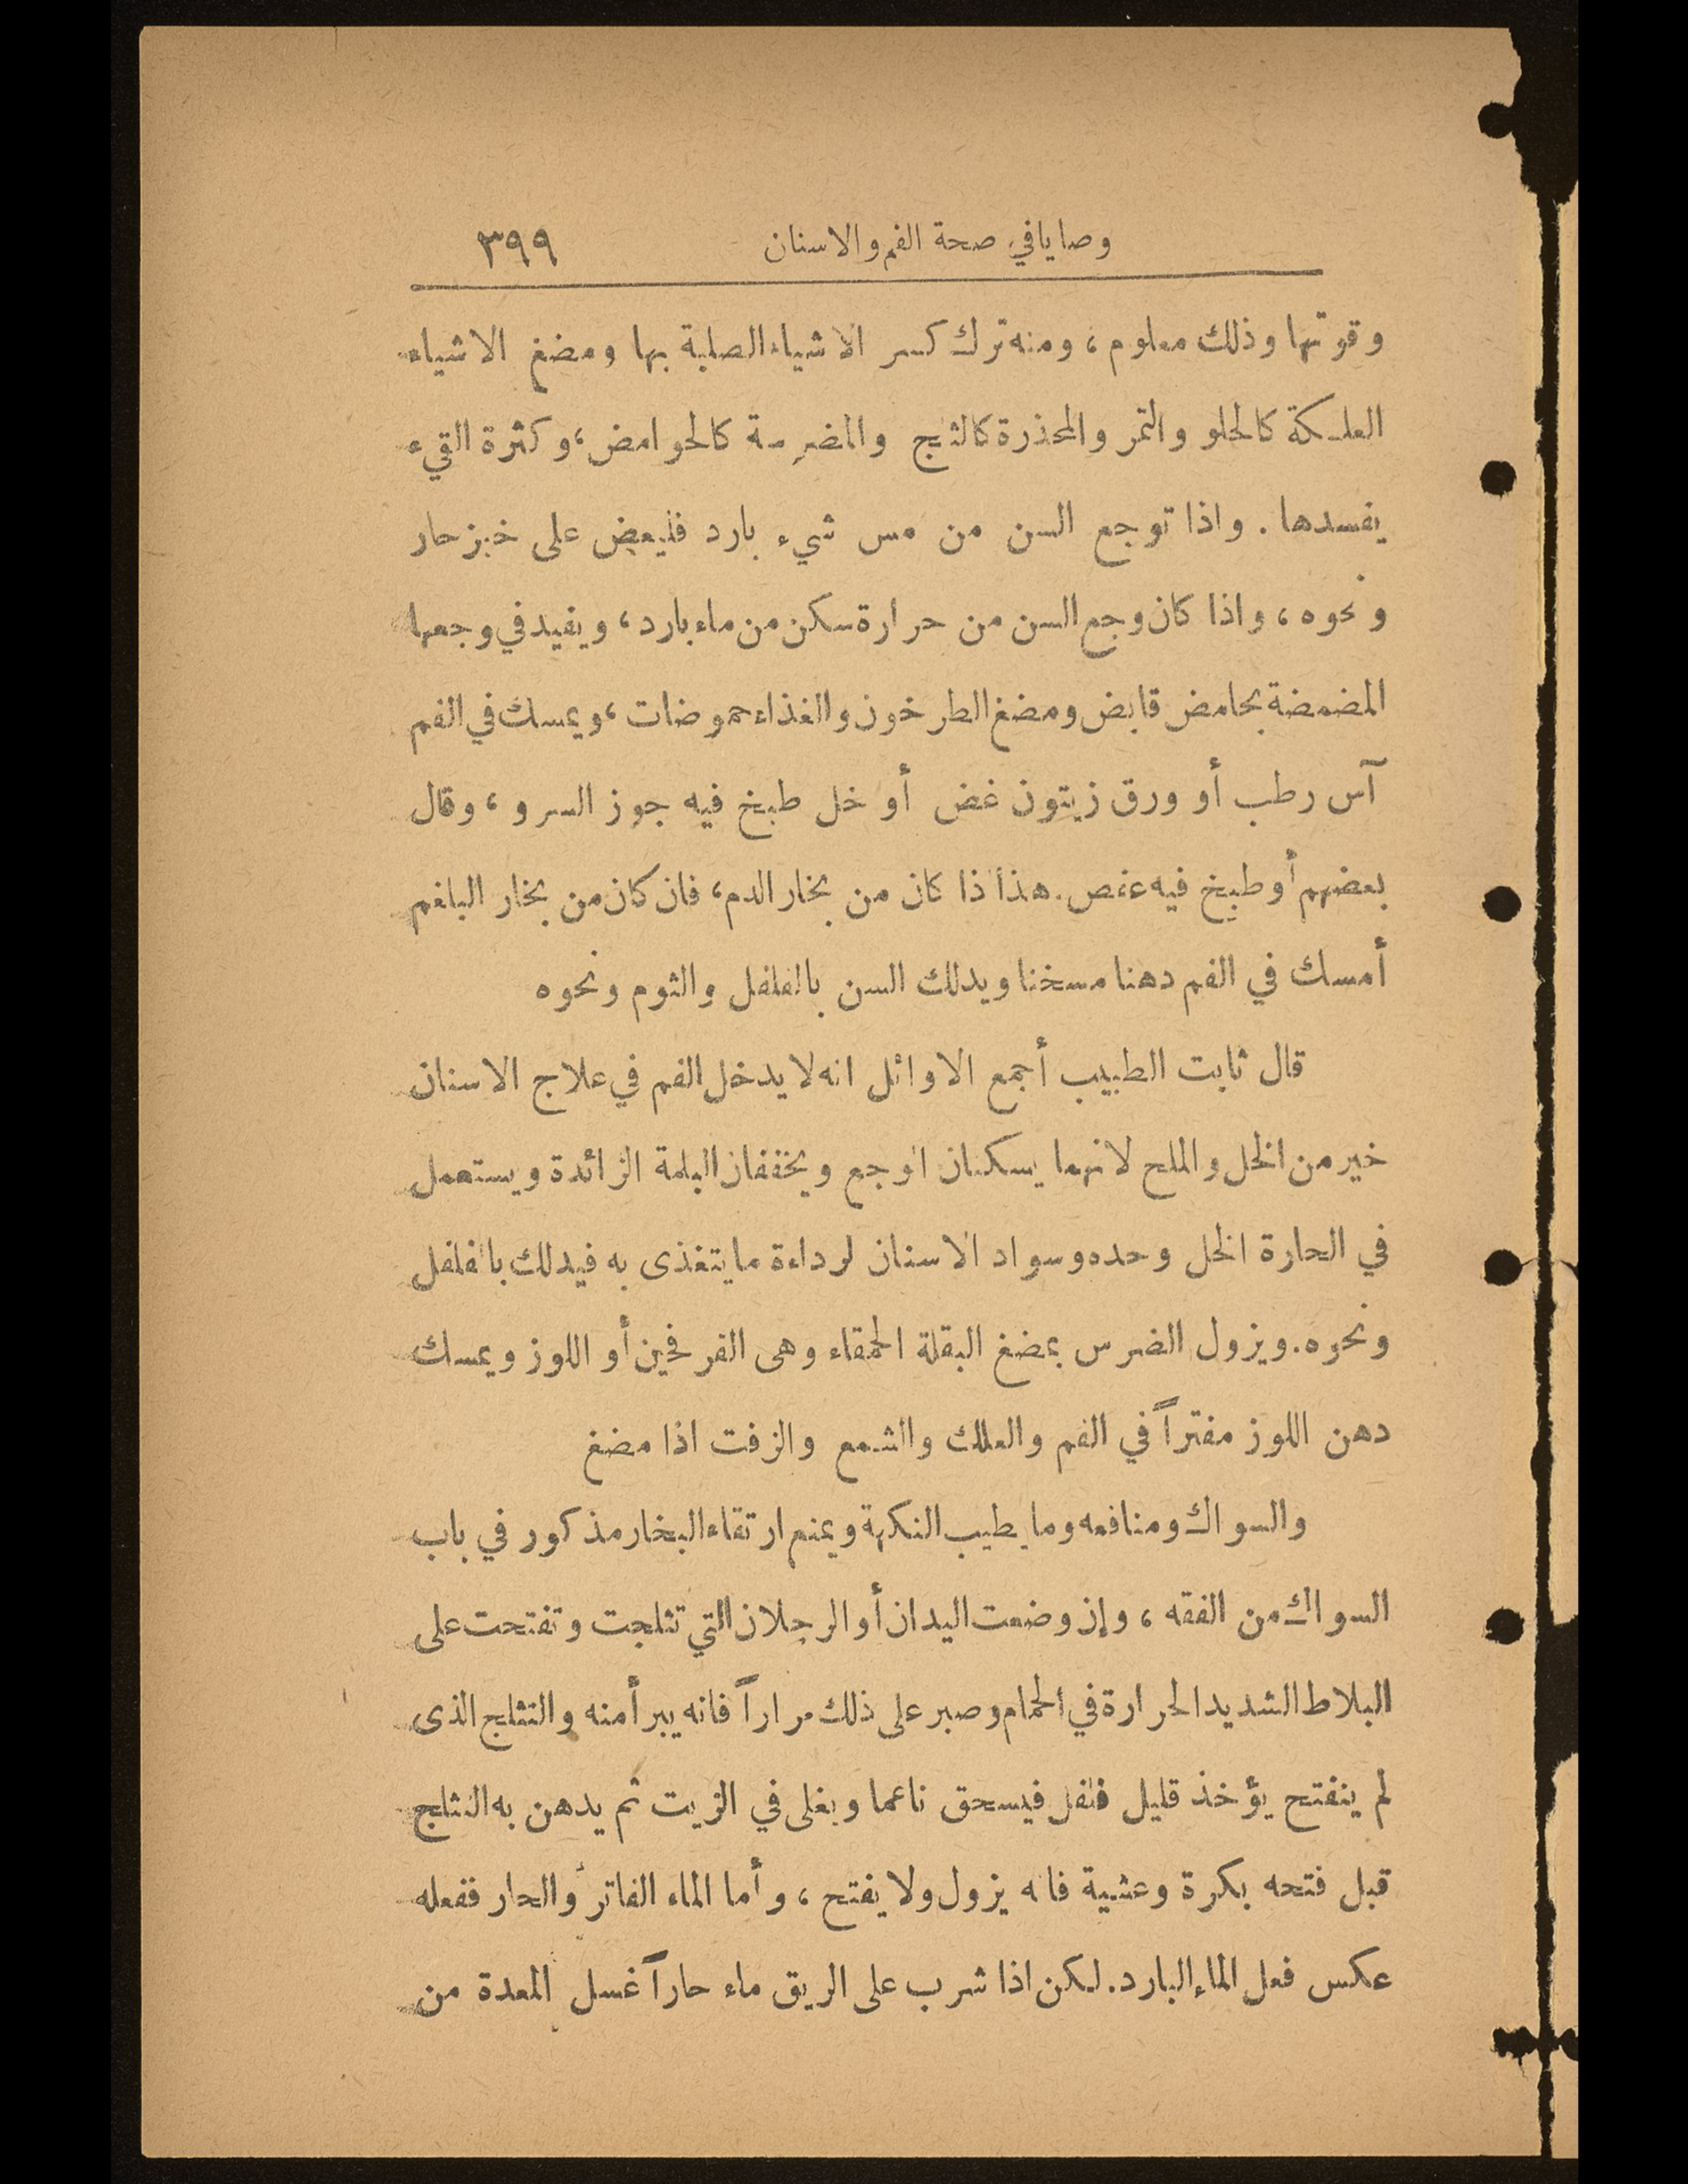 وصايا في صحة الفم والاسنان ٣٩٩
وقوتها وذلك معلوم، ومنه ترك كسر الاشياء الصلبة بها ومضغ الاشياء
العلكة كالحلو والتمر والمخذرة كالثلج والمضرسة كالحوامض، وكثرة القيء
يفسدها. واذا توجع السن من مس شيء بارد فليعض على خبز حار
ونحوه، واذا كان وجع السن من حرارة سكن من ماء بارد، ويفيد في وجعها
المضمضة بحامض قابض ومضغ الطرخون والغذاء حموضات، ويمسك في الفم
آس رطب أو ورق زيتون غض أو خل طبخ فيه جوز السرو، وقال
بعضهم أو طبخ فيه عفص. هذا اذا كان من بخار الدم، فان كان من بخار البلغم
أمسك في الفم دهنا مسخنا ويدلك السن بالفلفل والثوم ونحوه
قال ثابت الطبيب أجمع الاوائل انه لا يدخل الفم في علاج الاسنان
خير من الخل والملح لانهما يسكنان الوجع ويخففان البلة الزائدة ويستعمل
في الحارة الخل وحده وسواد الاسنان لرداءة ما يتغذى به فيدلك بالفلفل
ونحوه. ويزول الضرس بمضغ البقلة الحمقاء وهى الفرفحين أو اللوز ويمسك
دهن اللوز مفتراً في الفم والعلك والشمع والزفت اذا مضغ
والسواك ومنافعه وما يطيب النكهة ويمنع ارتقاء البخار مذكور في باب
السواك من الفقه، وإن وضعت اليدان أو الرجلان التي تثلجت وتفتحت على
البلاط الشديد الحرارة في الحمام وصبر على ذلك مراراً فانه يبرأ منه والتثلج الذى
لم ينفتح يؤخذ قليل فلفل فيسحق ناعما ويغلى في الزيت ثم يدهن به التثلج
قبل فتحه بكرة وعشية فانه يزول ولا يفتح، وأما الماء الفاتر والحار ففعله
عكس فعل الماء البارد. لكن اذا شرب على الريق ماء حاراً غسل المعدة من